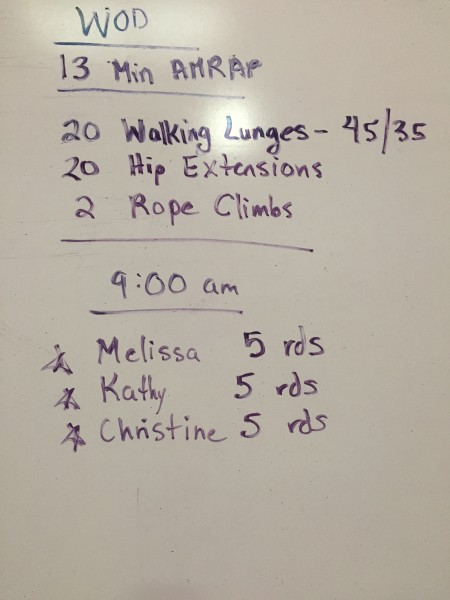 WOD
13 Min AMRAP
20 Walking Lunges - 45/35
20 Hip Extensions
2 Rope Climbs
9:00 am
Melissa 5 rds
Kathy 5 rds
Christine 5 rds